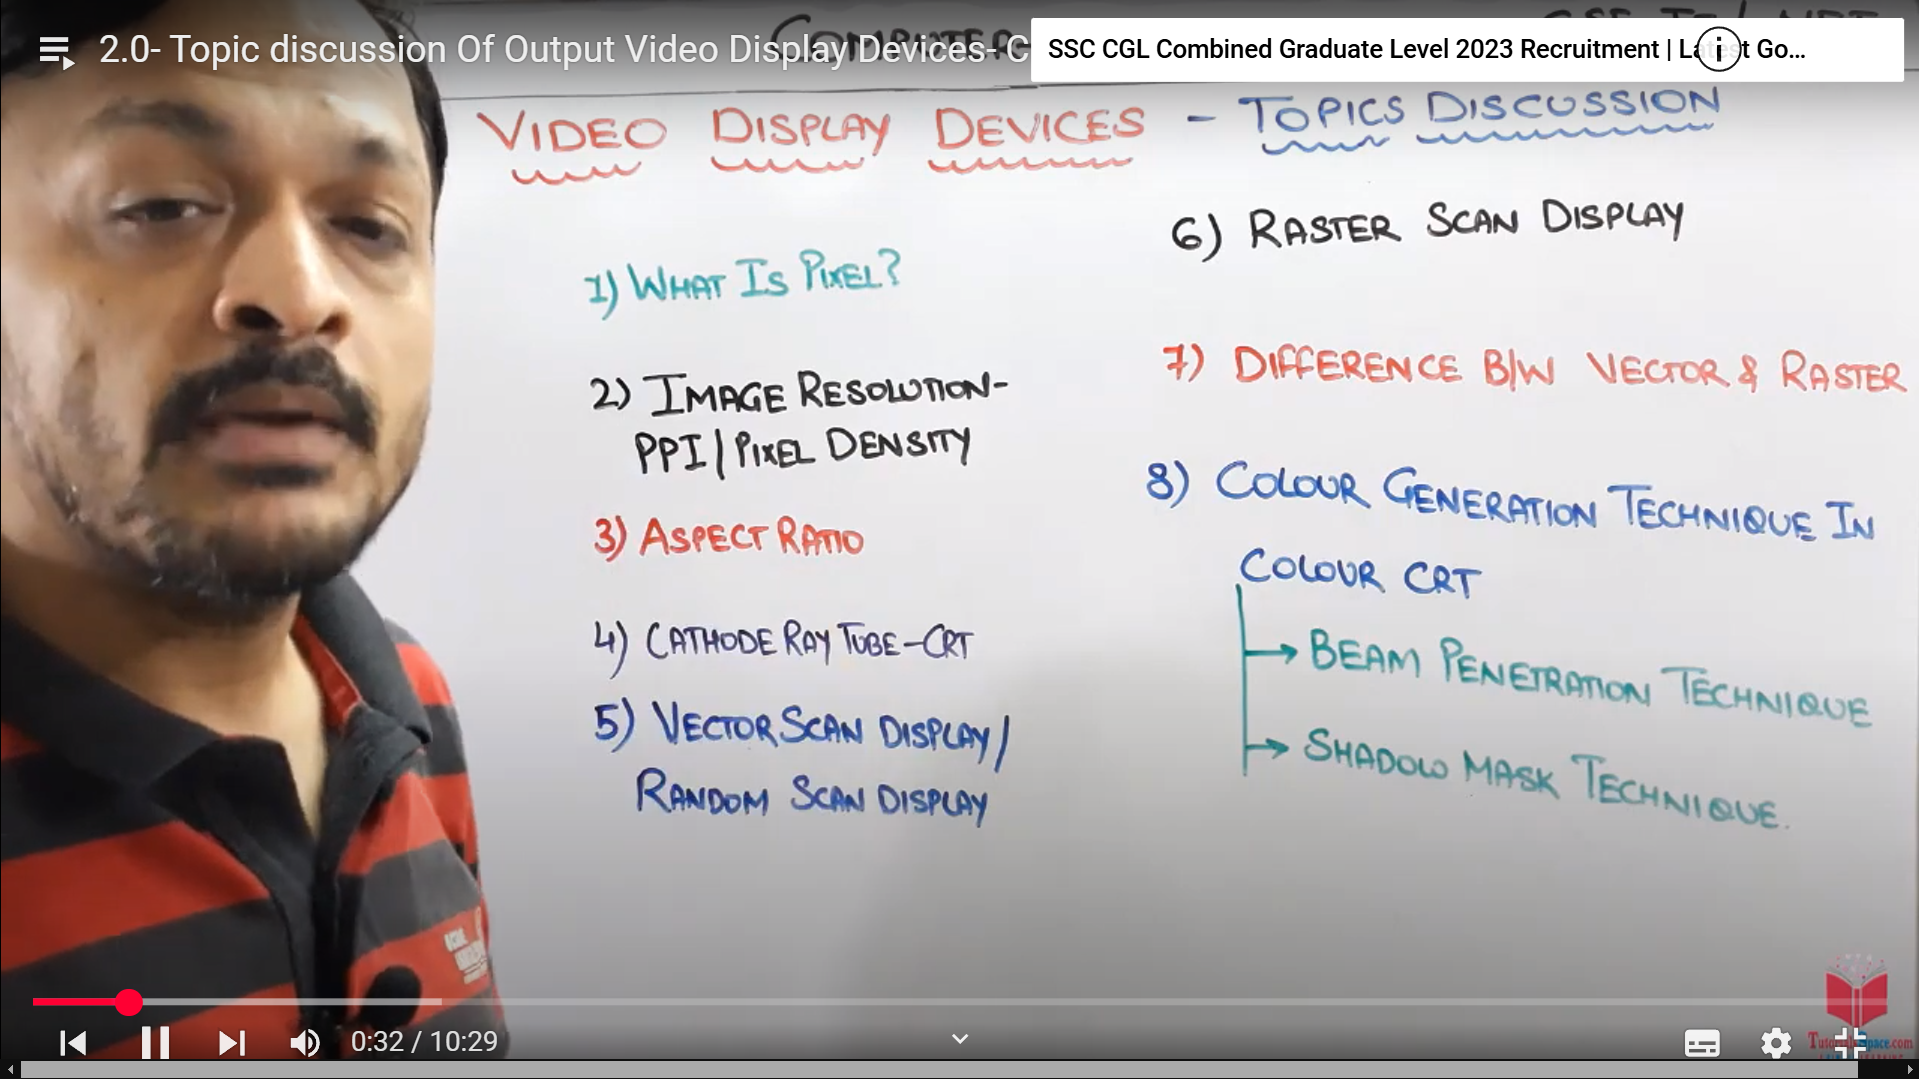 2.0- Topic discussion Of Output Video Display Devices- C
SSC CGL Combined Graduate Level 2023 Recruitment | Latest Go...
COMPUTER
VIDEO DISPLAY DEVICES - TOPICS DISCUSSION
1) WHAT IS PIXEL?
2) IMAGE RESOLUTION-
PPI/PIXEL DENSITY
3) ASPECT RATIO
4) CATHODE RAY TUBE-CRT
5) VECTOR SCAN DISPLAY/
RANDOM SCAN DISPLAY
6) RASTER SCAN DISPLAY
7) DIFFERENCE B/W VECTOR & RASTER
8) COLOUR GENERATION TECHNIQUE IN
COLOUR CRT
→ BEAM PENETRATION TECHNIQUE
→ SHADOW MASK TECHNIQUE.
0:32 / 10:29